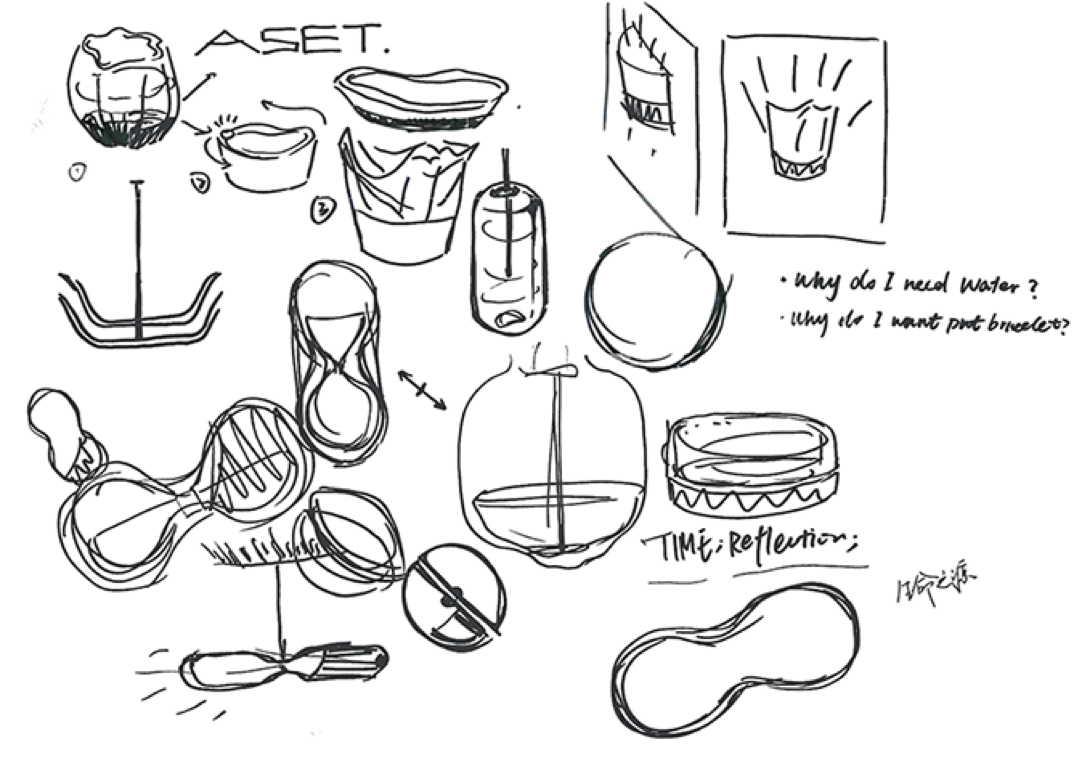 ASET.
①
②
③
· Why do I need water?
· Why do I want put bracelet?
TIME; Reflection;
生命之源